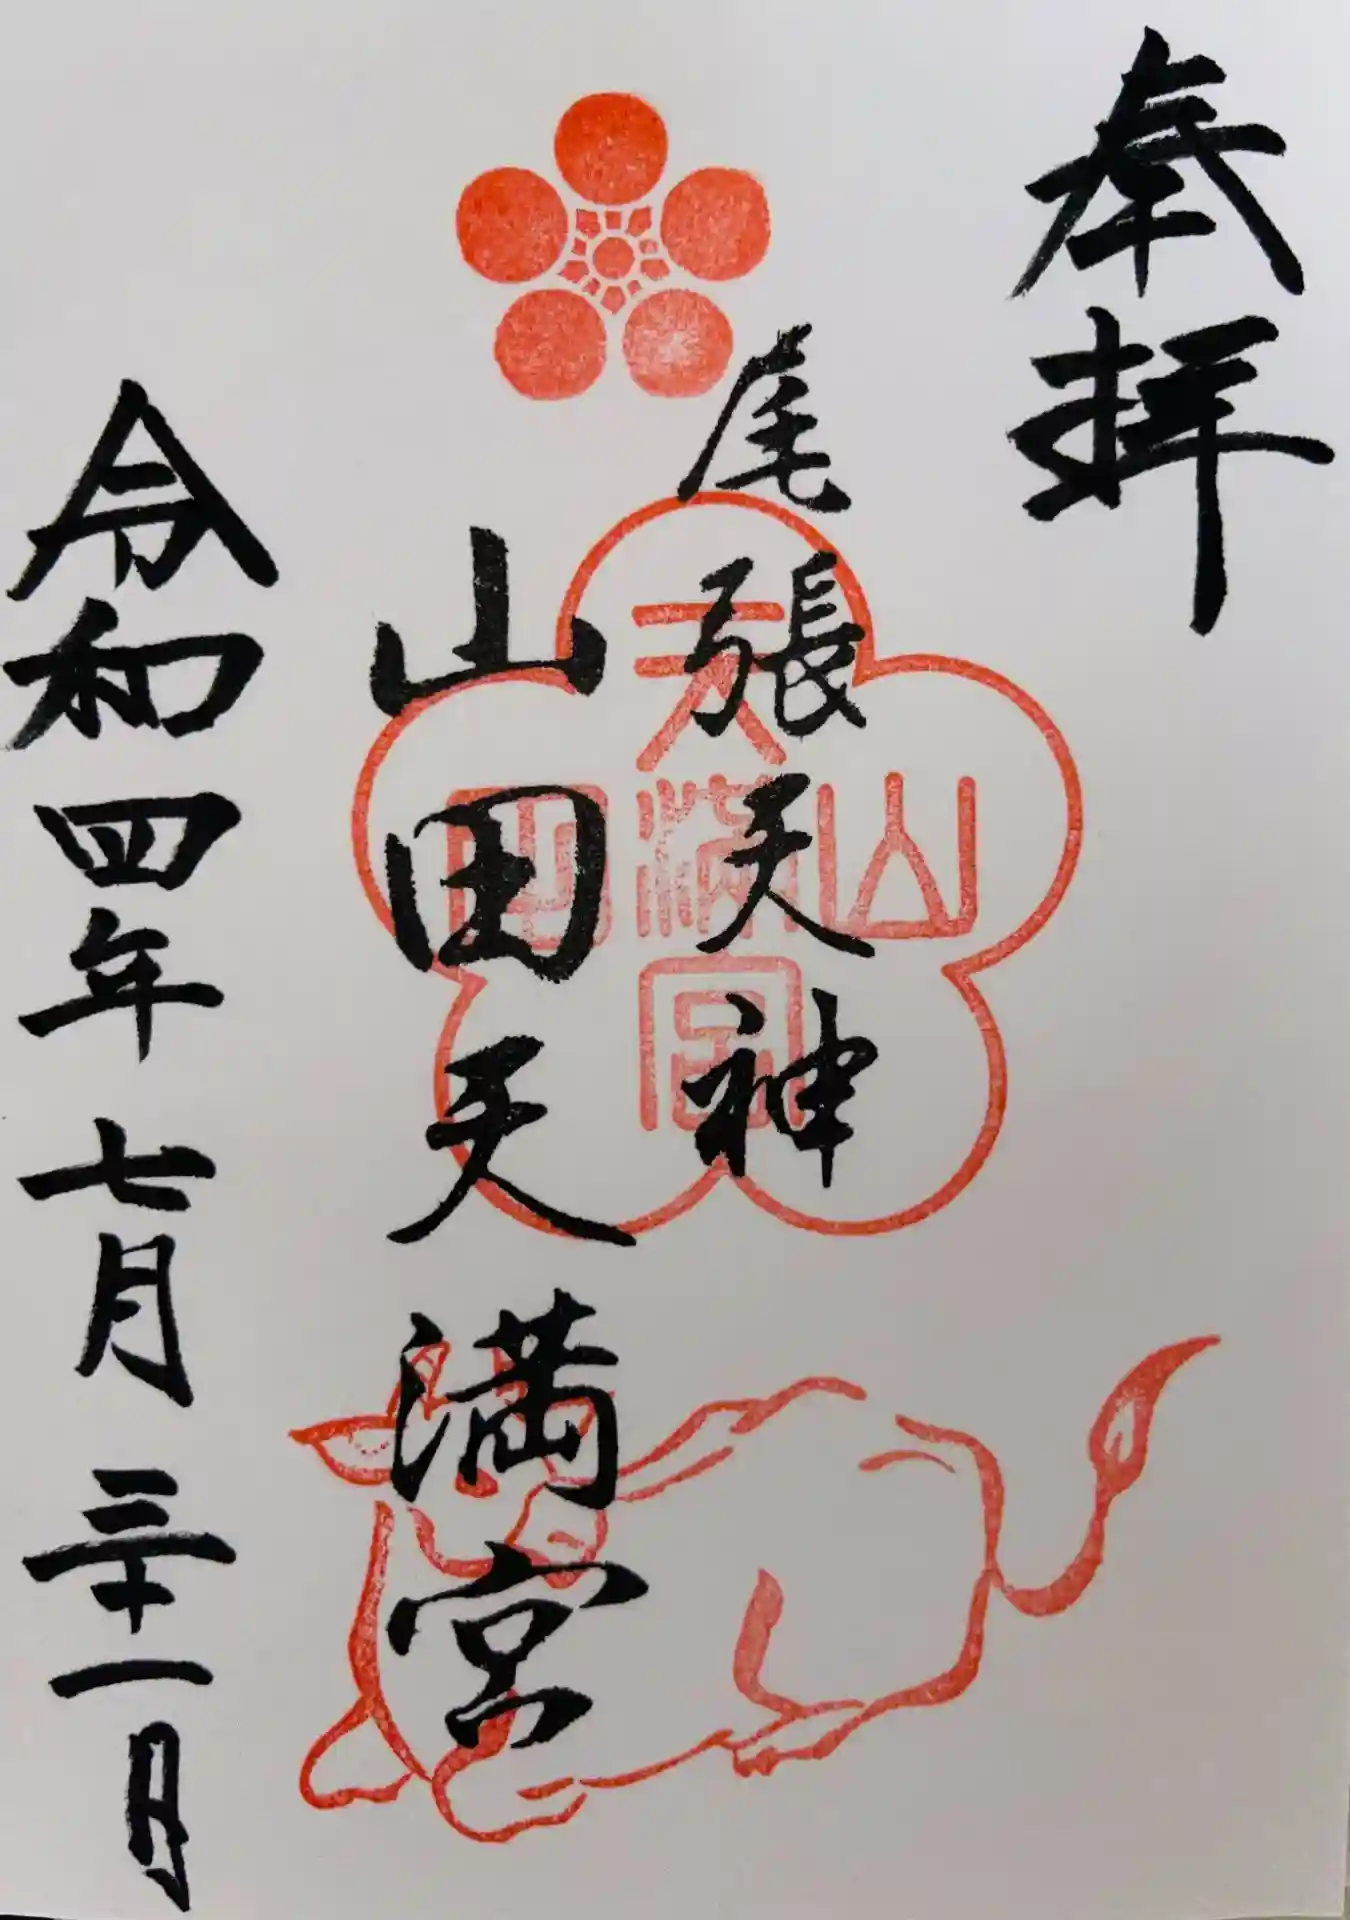 奉拝
尾張天神
山田天満宮
令和四年七月三十一日
山田
天満宮